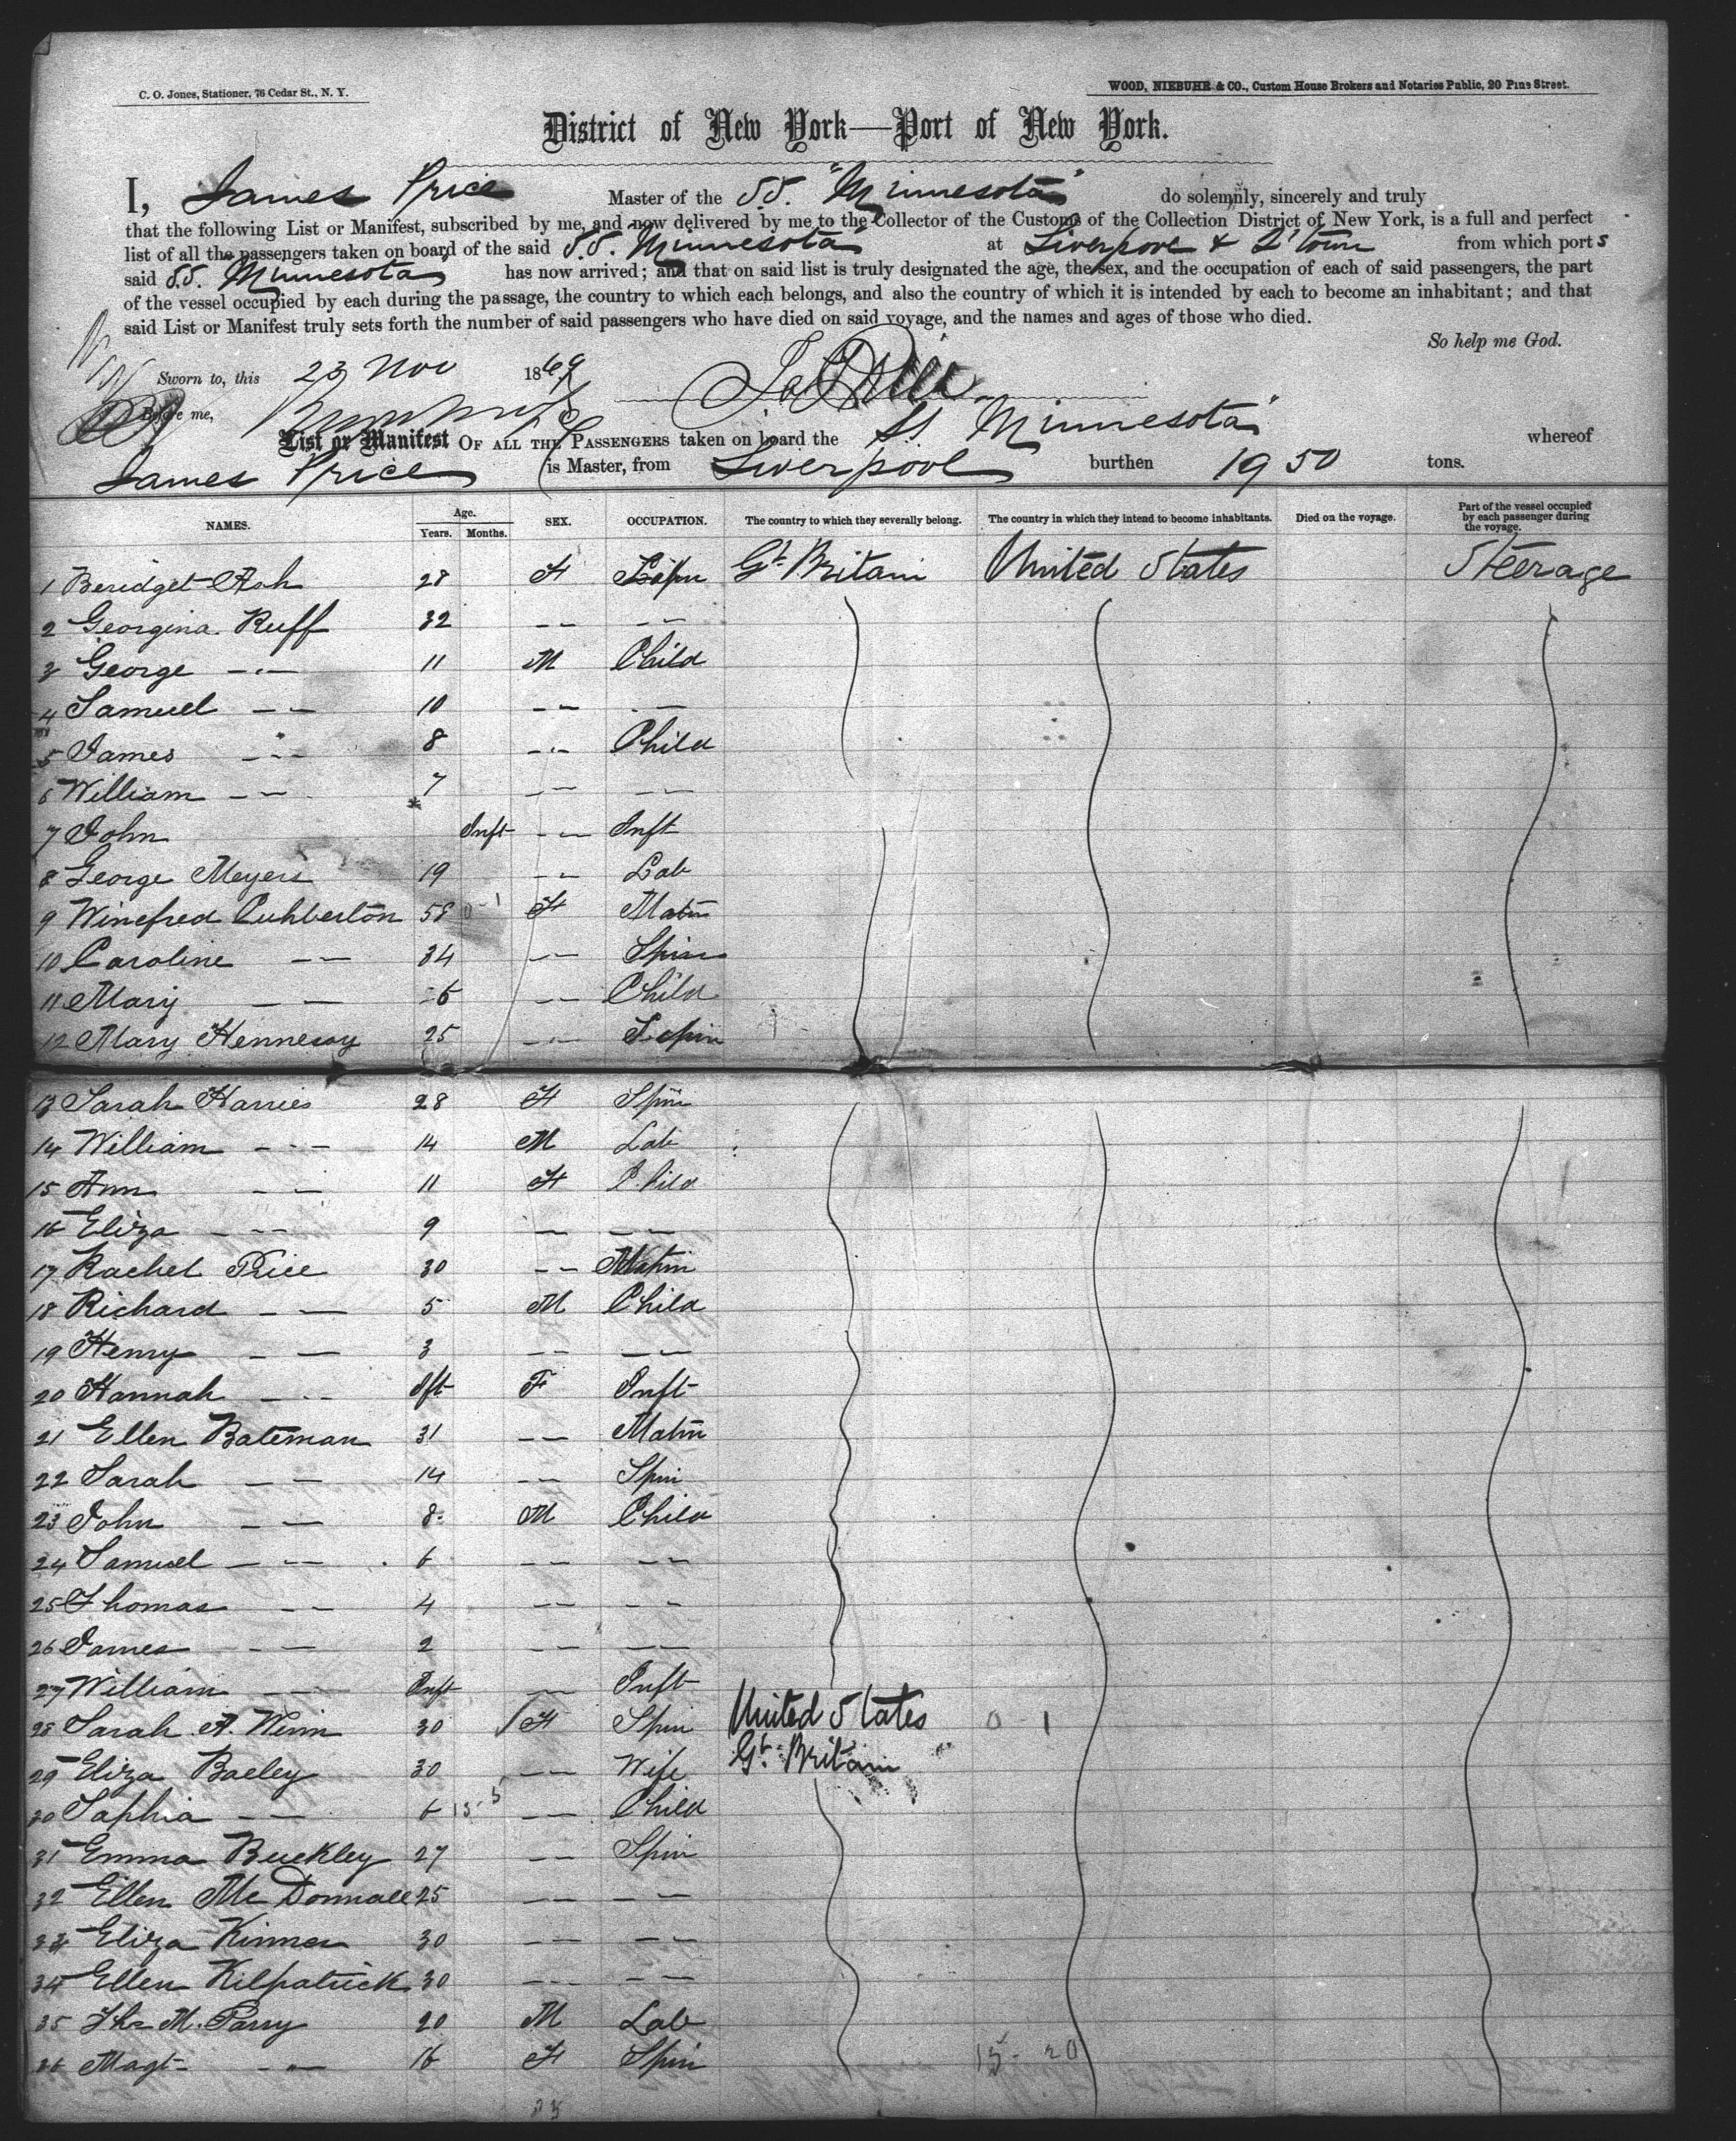 C. O. Jones, Stationer, 76 Cedar St., N. Y.
WOOD, NIEBUHR & CO., Custom House Brokers and Notaries Public, 20 Pine Street.
District of New York—Port of New York.
I, James Price Master of the S.S. "Minnesota" do solemnly, sincerely and truly
that the following List or Manifest, subscribed by me, and now delivered by me to the Collector of the Customs of the Collection District of New York, is a full and perfect
list of all the passengers taken on board of the said S.S. Minnesota at Liverpool & Q'town from which ports
said S.S. Minnesota has now arrived; and that on said list is truly designated the age, the sex, and the occupation of each of said passengers, the part
of the vessel occupied by each during the passage, the country to which each belongs, and also the country of which it is intended by each to become an inhabitant; and that
said List or Manifest truly sets forth the number of said passengers who have died on said voyage, and the names and ages of those who died.
So help me God.
Sworn to, this 23 Nov 1869 Jas Price
Before me,
List or Manifest OF ALL THE PASSENGERS taken on board the SS Minnesota" whereof
James Price is Master, from Liverpool burthen 1950 tons.
NAMES. Age. Years. Months. SEX. OCCUPATION. The country to which they severally belong. The country in which they intend to become inhabitants. Died on the voyage. Part of the vessel occupied by each passenger during the voyage.
1 Beridget Ash 28 F Gt Britain United States Steerage
2 Georgina Ruff 32 -- --
3 George -- 11 M Child
4 Samuel -- 10 -- --
5 James -- 8 -- Child
6 William -- 7 -- --
7 John Inft -- Inft
8 George Meyers 19 -- Lab
9 Winefred Cuhberton 58 F Matn
10 Caroline -- 34 -- Spin
11 Mary -- 6 -- Child
12 Mary Hennessy 25 -- Spin
13 Sarah Harries 28 F Spin
14 William -- 14 M Lab
15 Ann -- 11 F Child
16 Eliza -- 9 -- --
17 Rachel Price 30 -- Matn
18 Richard -- 5 M Child
19 Henry -- 3 -- --
20 Hannah -- Ift F Inft
21 Ellen Bateman 31 -- Matn
22 Sarah -- 14 -- Spin
23 John -- 8 M Child
24 Samuel -- 6 -- --
25 Thomas -- 4 -- --
26 James -- 2 -- --
27 William -- Inft -- Inft
28 Sarah A. Winn 30 F Spin United States 0-1
29 Eliza Baeley 30 -- Wife Gt Britain
30 Sophia -- 6 -- Child
31 Emma Buckley 27 -- Spin
32 Ellen Mc Donnall 25 -- --
33 Eliza Kinner 30 -- --
34 Ellen Kilpatrick 30 -- --
35 Ths M. Parry 20 M Lab
36 Magt -- 16 F Spin 15-20